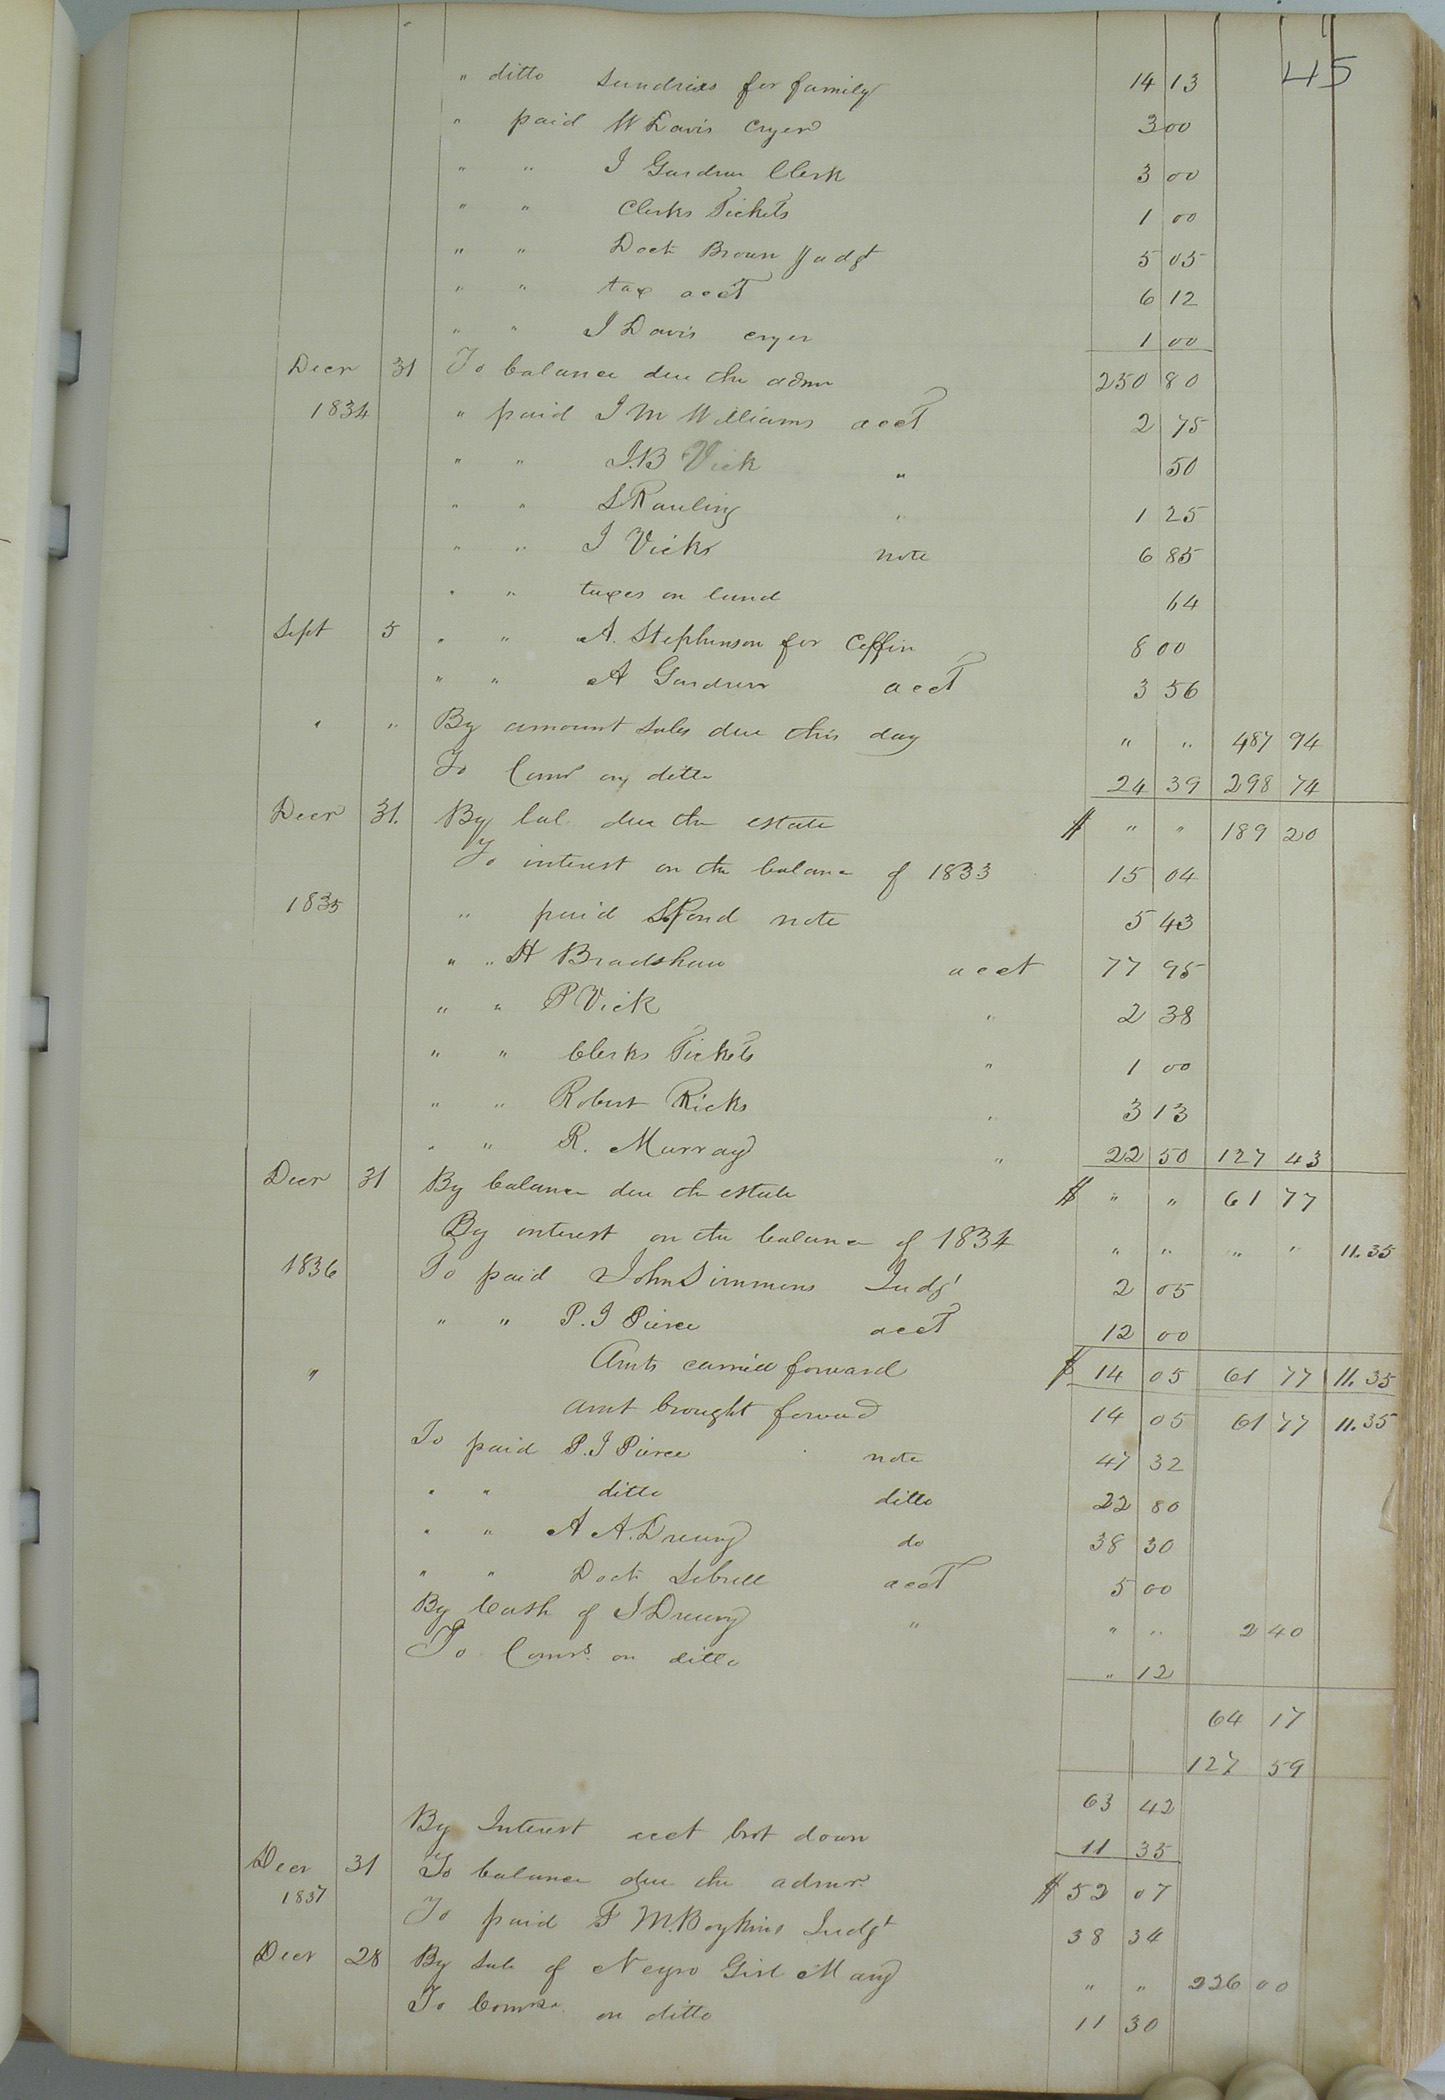 45
" ditto Sundries for family 14 13
" paid W Davis Cryer 3 00
" " J Gardner Clerk 3 00
" " Clerks Tickets 1 00
" " Doct Brown Judgt 5 05
" " tax acct 6 12
" " J Davis cryer 1 00
Decr 31 To balance due the admr 250 80
1834 " paid J M Williams acct 2 75
" " J.B Vick " 50
" " S Rawling " 1 25
" " J Vicks note 6 85
" " taxes on land 64
Sept 5 " " A. Stephenson for Coffin 8 00
" " A Gardner acct 3 56
" " By amount Sales due this day " " 487 94
To Coms on ditto 24 39 298 74
Decr 31. By bal. due the estate $ " " 189 20
To interest on the balance of 1833 15 04
1835 " paid S. Pond note 5 43
" " H Bradshaw acct 77 95
" " P Vick " 2 38
" " Clerks Tickets " 1 00
" " Robert Ricks " 3 13
" " R. Murray " 22 50 127 43
Decr 31 By balance due the estate $ " " 61 77
By interest on the balance of 1834 " " " " 11.35
1836 To paid John Simmons Judgt 2 05
" " P. J Pierce acct 12 00
" Amts carried forward $ 14 05 61 77 11.35
amt brought forward 14 05 61 77 11.35
To paid P. J Pierce note 47 32
" " ditto ditto 22 80
" " A A. Drewry do 38 30
" " Doct Sebrell acct 5 00
By Cash of J Drewry " " " 2 40
To Coms. on ditto " 12
64 17
127 59
63 42
By Interest acct brot down 11 35
Decr 31 To balance due the admr. $ 52 07
1837 To paid F M. Boykins Judgt 38 34
Decr 28 By Sale of Negro Girl Mary " " 226 00
To Comss. on ditto 11 30